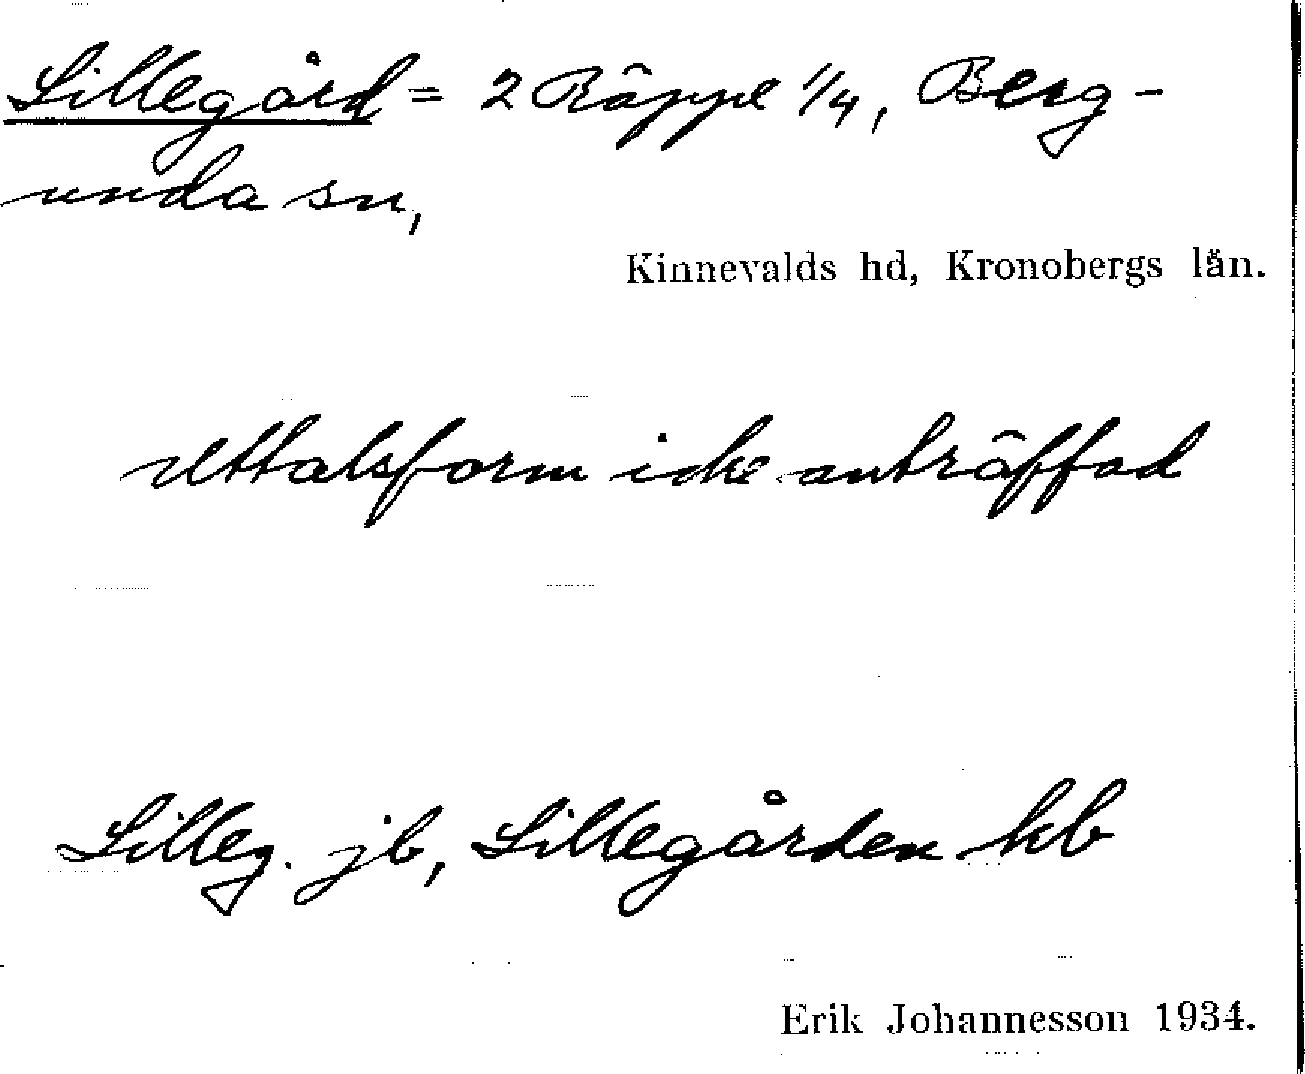 Lillegård = 2 Räppe 1/4, Berg-
unda sn,
Kinnevalds hd, Kronobergs län.
uttalsform icke anträffad
Lilleg. jb, Lillegården kb
Erik Johannesson 1934.